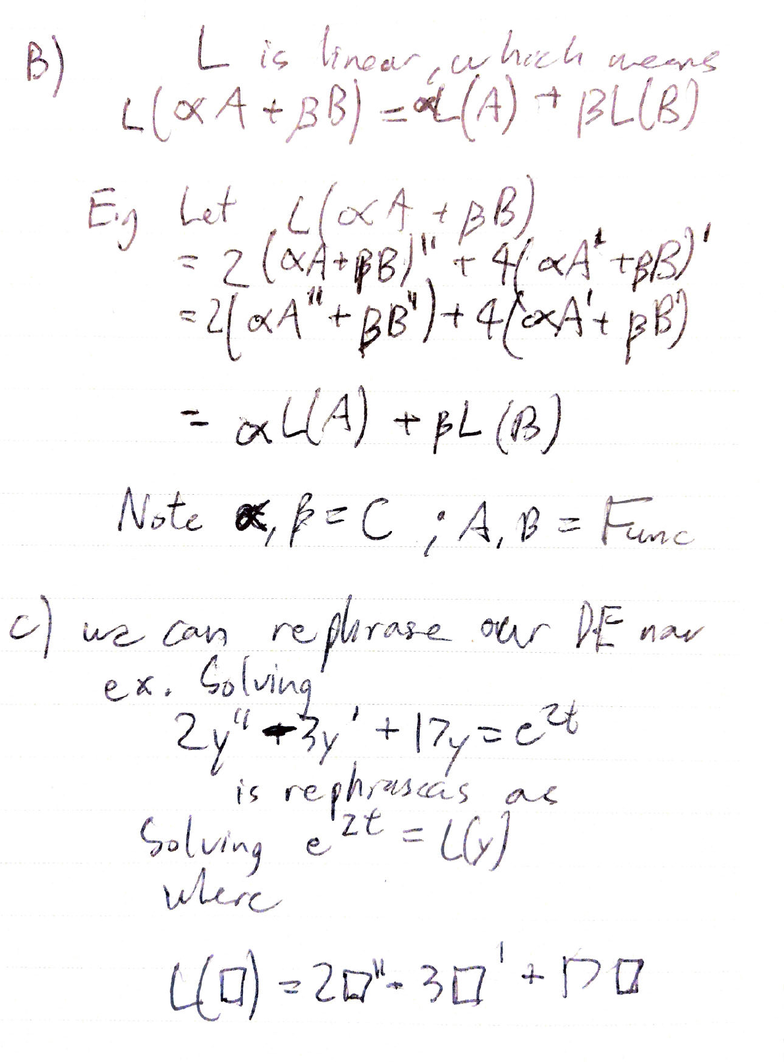 B) L is linear, which means
L(αA + βB) = αL(A) + βL(B)
E.g Let L(αA + βB)
= 2(αA+βB)'' + 4(αA' +βB)'
= 2(αA'' + βB'') + 4(αA' + βB')
= αL(A) + βL(B)
Note α, β = C ; A, B = Func
c) we can rephrase our DE now
ex. Solving
2y'' - 3y' + 17y = e^2t
is rephrased as
Solving e^2t = L(y)
where
L(□) = 2□'' - 3□' + 17□